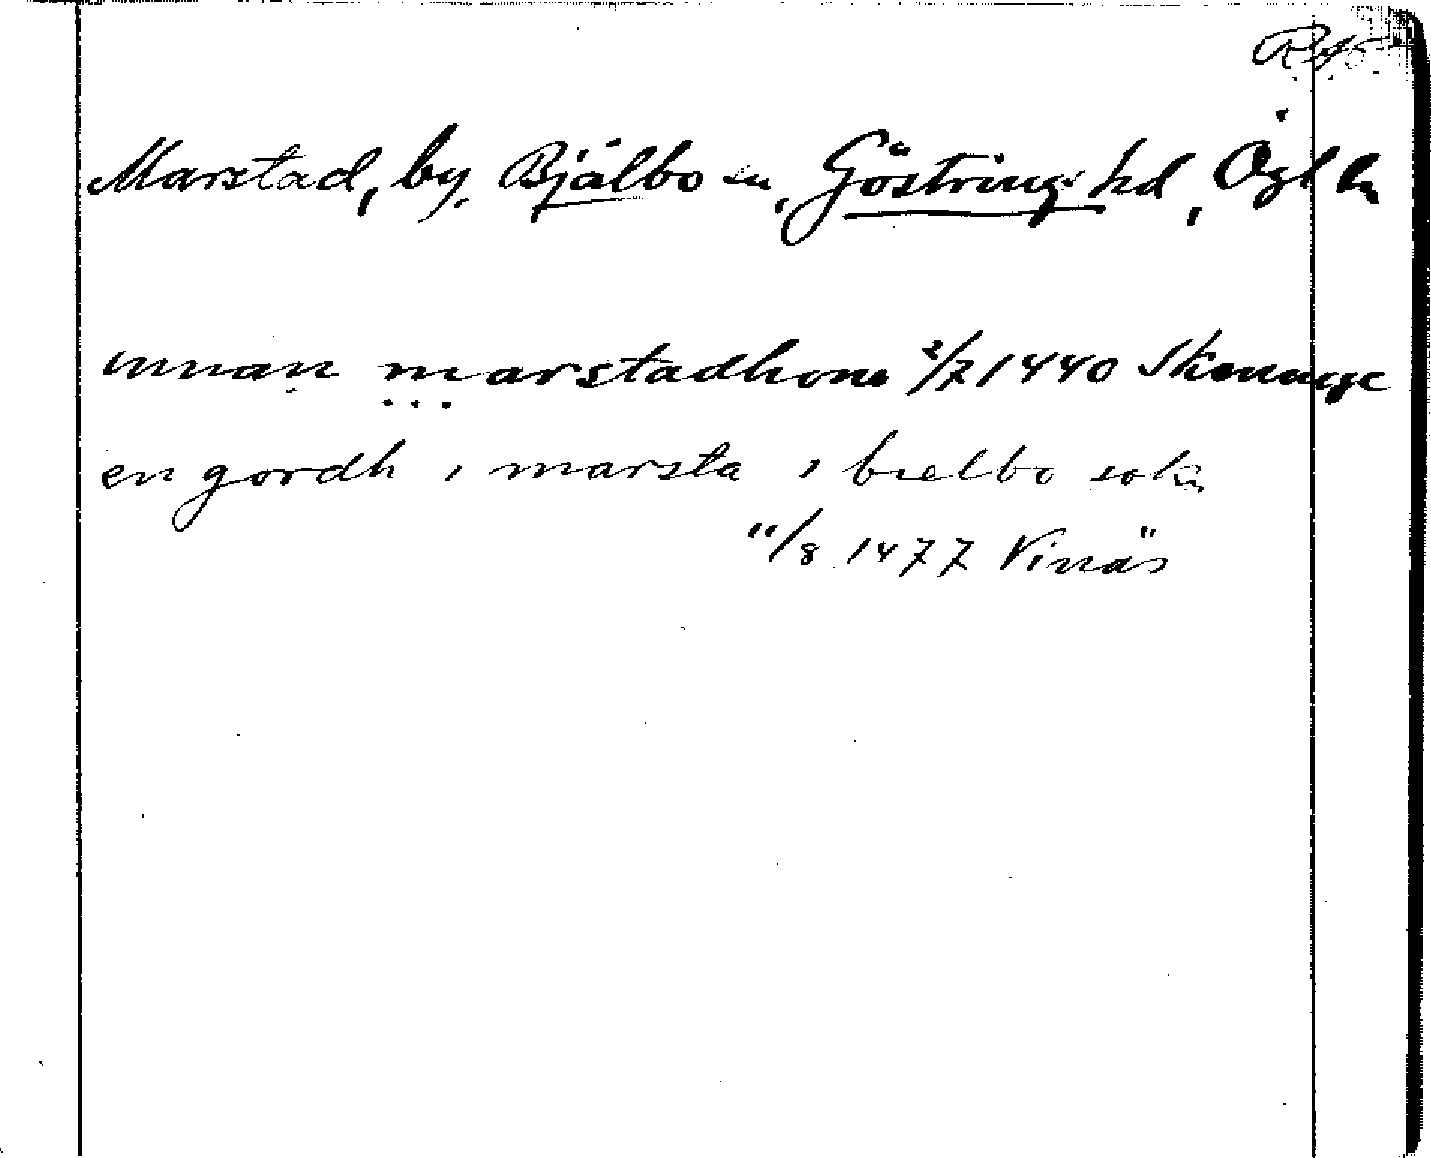 RAp
Marstad, by, Bjälbo sn, Göstrings hd, Ögl ln
innan marstadhom 2/7 1440 Skenninge
en gordh i marsta i bielbo sokn
11/8 1477 Vinäs